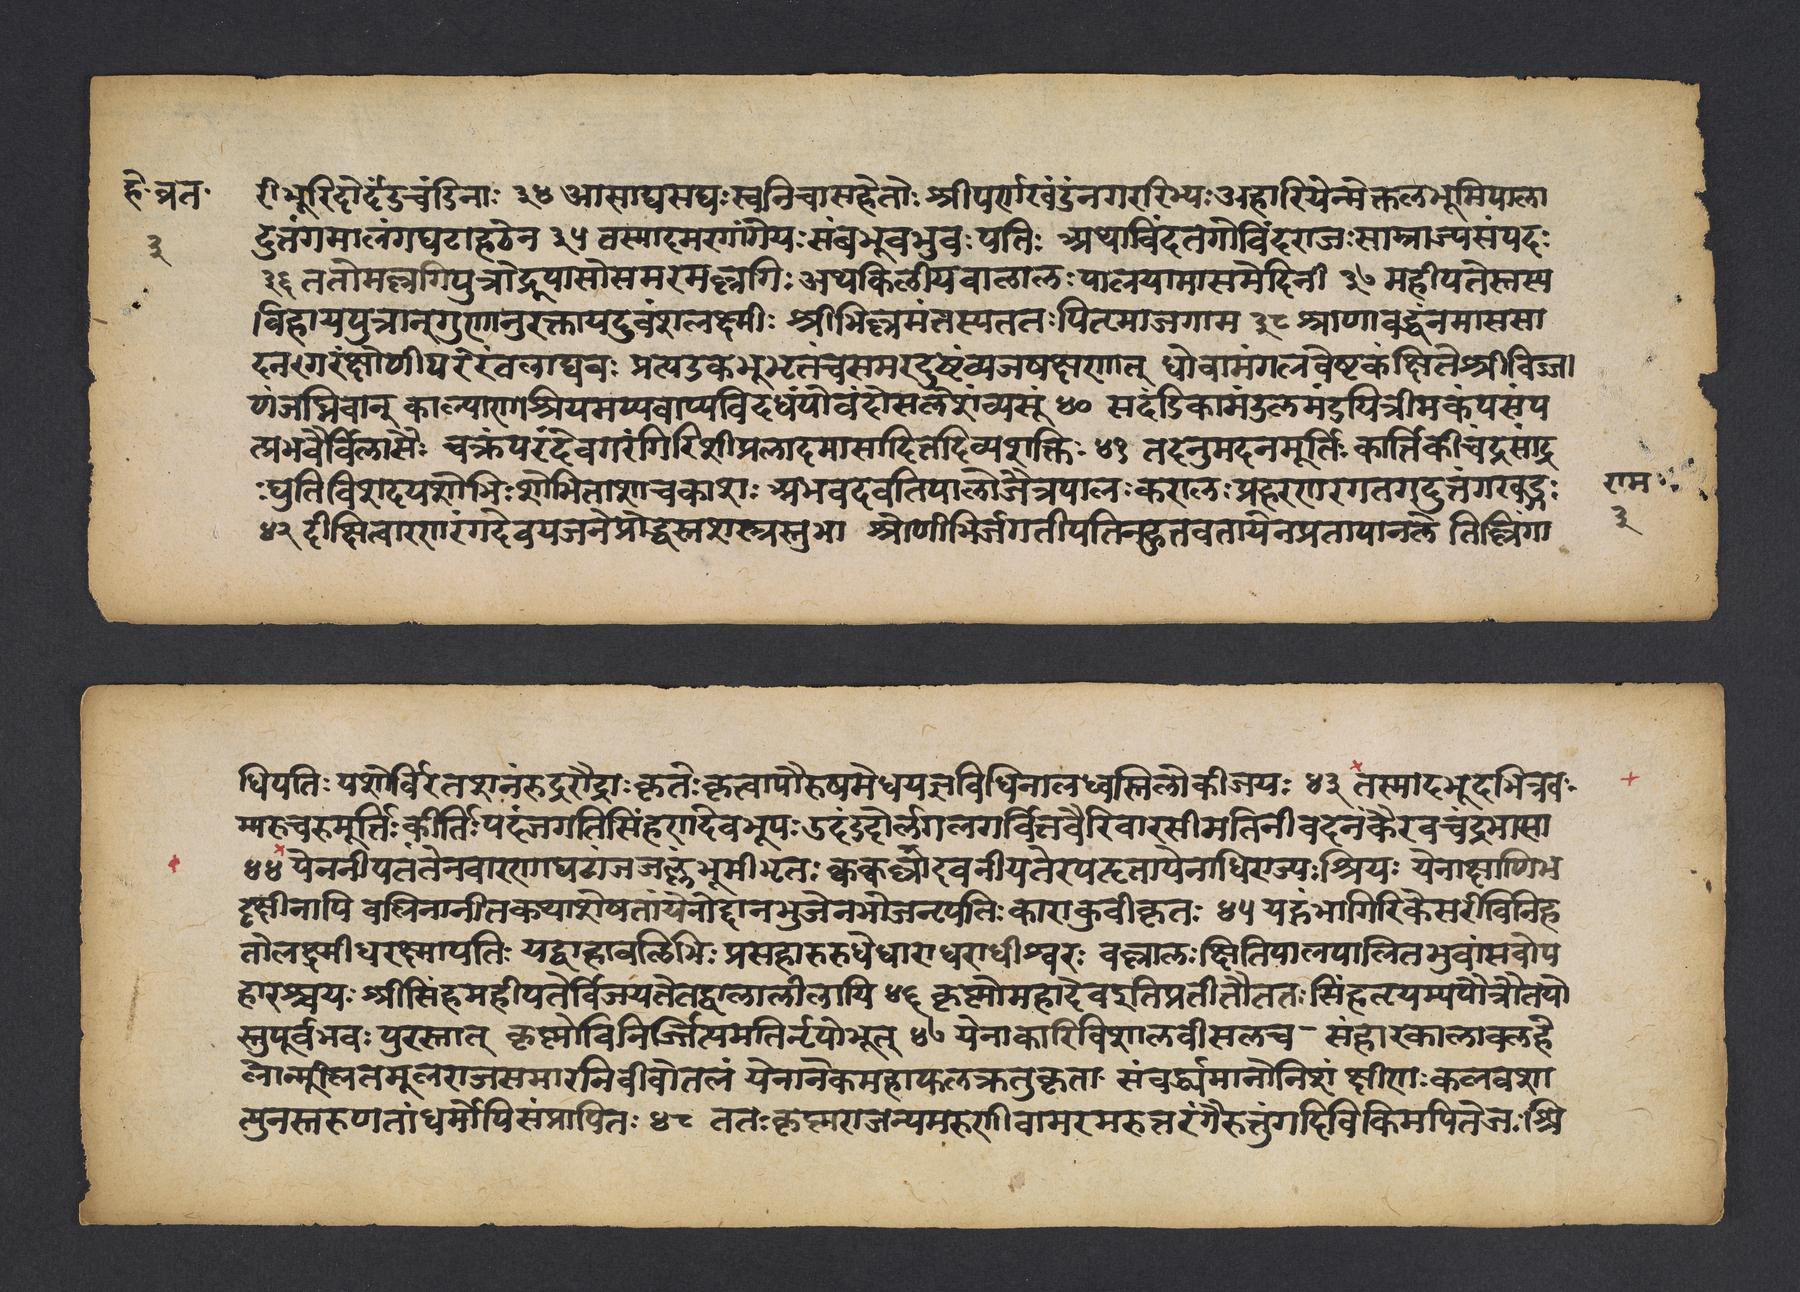 हे॰ व्रत॰
३
रीभूरिदोर्दंडचंडिनाः ३४ आसाद्यसद्यःस्वनिचासहेतोः श्रीपर्णखंडंनगररिभ्यः अहारियेन्मेक्तलभूमिपाला
दुत्तंगमालंगघटाहठेन ३५ तस्मादमरगांगेयः संबभूवभुवः पतिः अथाविंदतगोविंदराजः साम्राज्यसंपदः
३६ ततोमल्लगिपुत्रोद्रूपासोसमरमल्लगिः अथकिलीयवालालः पालयामासमेदिनी ३७ महीपतेस्तस
विहायपुत्रान्गुणानुरक्तायदुवंशलक्ष्मीः श्रीभिल्लमंतस्यततः पितृमाजगाम ३८ श्राणावर्द्धनमाससा
दनगरंक्षोणीपरेरंवलाद्यवः प्रत्यडकेभूभृतंचसमरदुष्टंव्यजषक्षणात् धोवामंगलवेष्टकंक्षितेश्रीविज्जा
णंजघ्निवान् काल्याणश्रियमप्यवाप्यविदधंयोवहोसलेशंव्यसूं ४० सदंडिकामंडलमंडपित्रीमकंपसंप
त्प्रभवैर्विलासैः चक्रंपरंदेवगरंगिरिशीप्रलादमासादितदिव्यशक्तिः ४१ तदनुमदनमूर्तिः कार्तिकीचंद्रसांद्र
ःघुतिविशदयशोभिःशोभिताशाचकाशः अभवदवतिपालोजैत्रपालः करालः प्रहरणरगतगदुत्तंगखड्गः
राम
३
४२ दीक्षित्वारणरंगदेवयजनेप्रोद्धस्तशस्त्रस्तुभा श्रोणीभिर्जगतीपतिनहुतवतायेनप्रतापानले तिल्लिंगा
धिपतिः यशोर्विरतशनंरुदुरौद्राः कृतेः कृत्वापौरुषमेधयज्ञविधिनालध्वस्त्रिलोकीजयः ४३ तस्मादभूदभिनवः
स्मरुचरुमूर्त्तिः कीर्त्तिः पदंजगतिसिंहणदेवभूपः उदंडदोर्लगलगर्वितवैरिवारसीमतिनीवदनंकैरवचंद्रभासा
४४ येननीपतंतेनवारणघटांजजल्लभूमीभृतः क्वकद्योदवनीयतेरपहृतायेनाधिराज्यःश्रियः येनाक्षणिभ
दृक्षीनापि बलिनानीतकथाशेषतांयेनोद्दानभुजेनभोजनृपतिः काराकुवीकृतः ४५ यद्दंभागिरिकेसरीर्विनिह
तोलक्ष्मीधरक्ष्मापतिः यद्वाहावळिभिः प्रसहारुरुधेधाराधराधीश्वरः बल्लालः क्षितिपालपालितभुवांसवोप
हारश्चयः श्रीसिंहमहीपतेर्विजयतेतद्वालालीलायि ४६ कृष्णोमहादेवइतिप्रतीतौततः सिंहतृयस्यपौत्रौतयो
स्तुपूर्वभवः पुरस्तात् कृष्णोविनिर्ज्जित्यमतिर्नृपोभूत् ४७ येनाकारिविशालवीसलच- संहारकालाक्तहे
लोन्मूलितमूलराजसमारनिवीवोतलं येनानेकमहाफलक्रतुकृताः संवर्द्धमानोनिशं क्षीणः कलवशा
त्पुनस्तरुणतांधर्मोपिसंप्रापितः ४८ ततः कृष्णराजन्यमरुणीवामरमरुत्तरंगैरुत्तुंगदिविकिमपितेजः श्रि